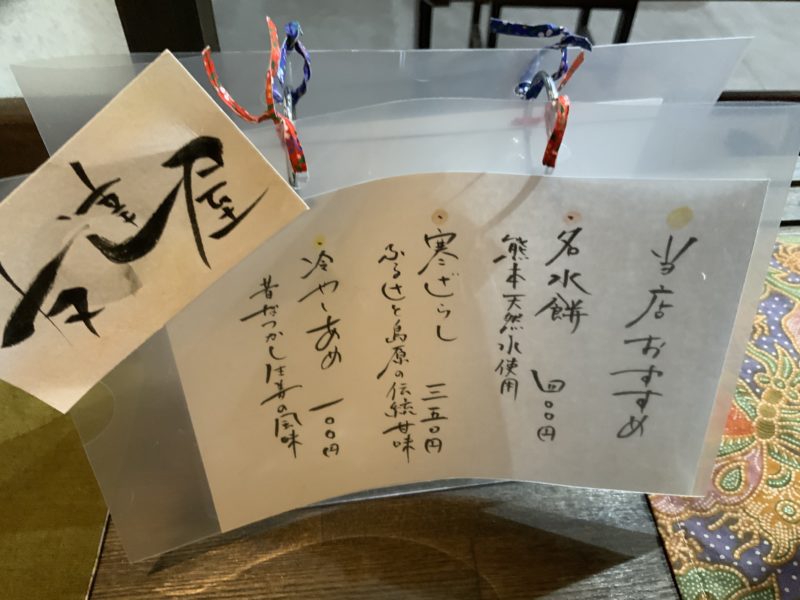 当店おすすめ
名水餅 四〇〇円
熊本天然水使用
寒ざらし 三五〇円
ふるさと島原の伝統甘味
冷やしあめ 一〇〇円
昔なつかし生姜の風味
屋